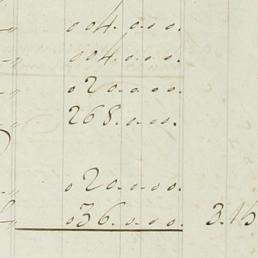 004.0.0.
004.0.0.
020.0.0.0.
268.0.0.0.
020.0.0.0.
036.0.0.0. 3.16